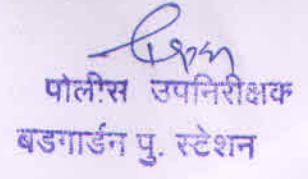 पोलीस उपनिरीक्षक
बडगार्डन पु. स्टेशन